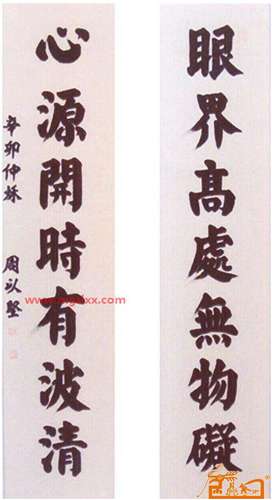 眼界高處無物礙
心源開時有波清
辛卯仲秋 周以堅